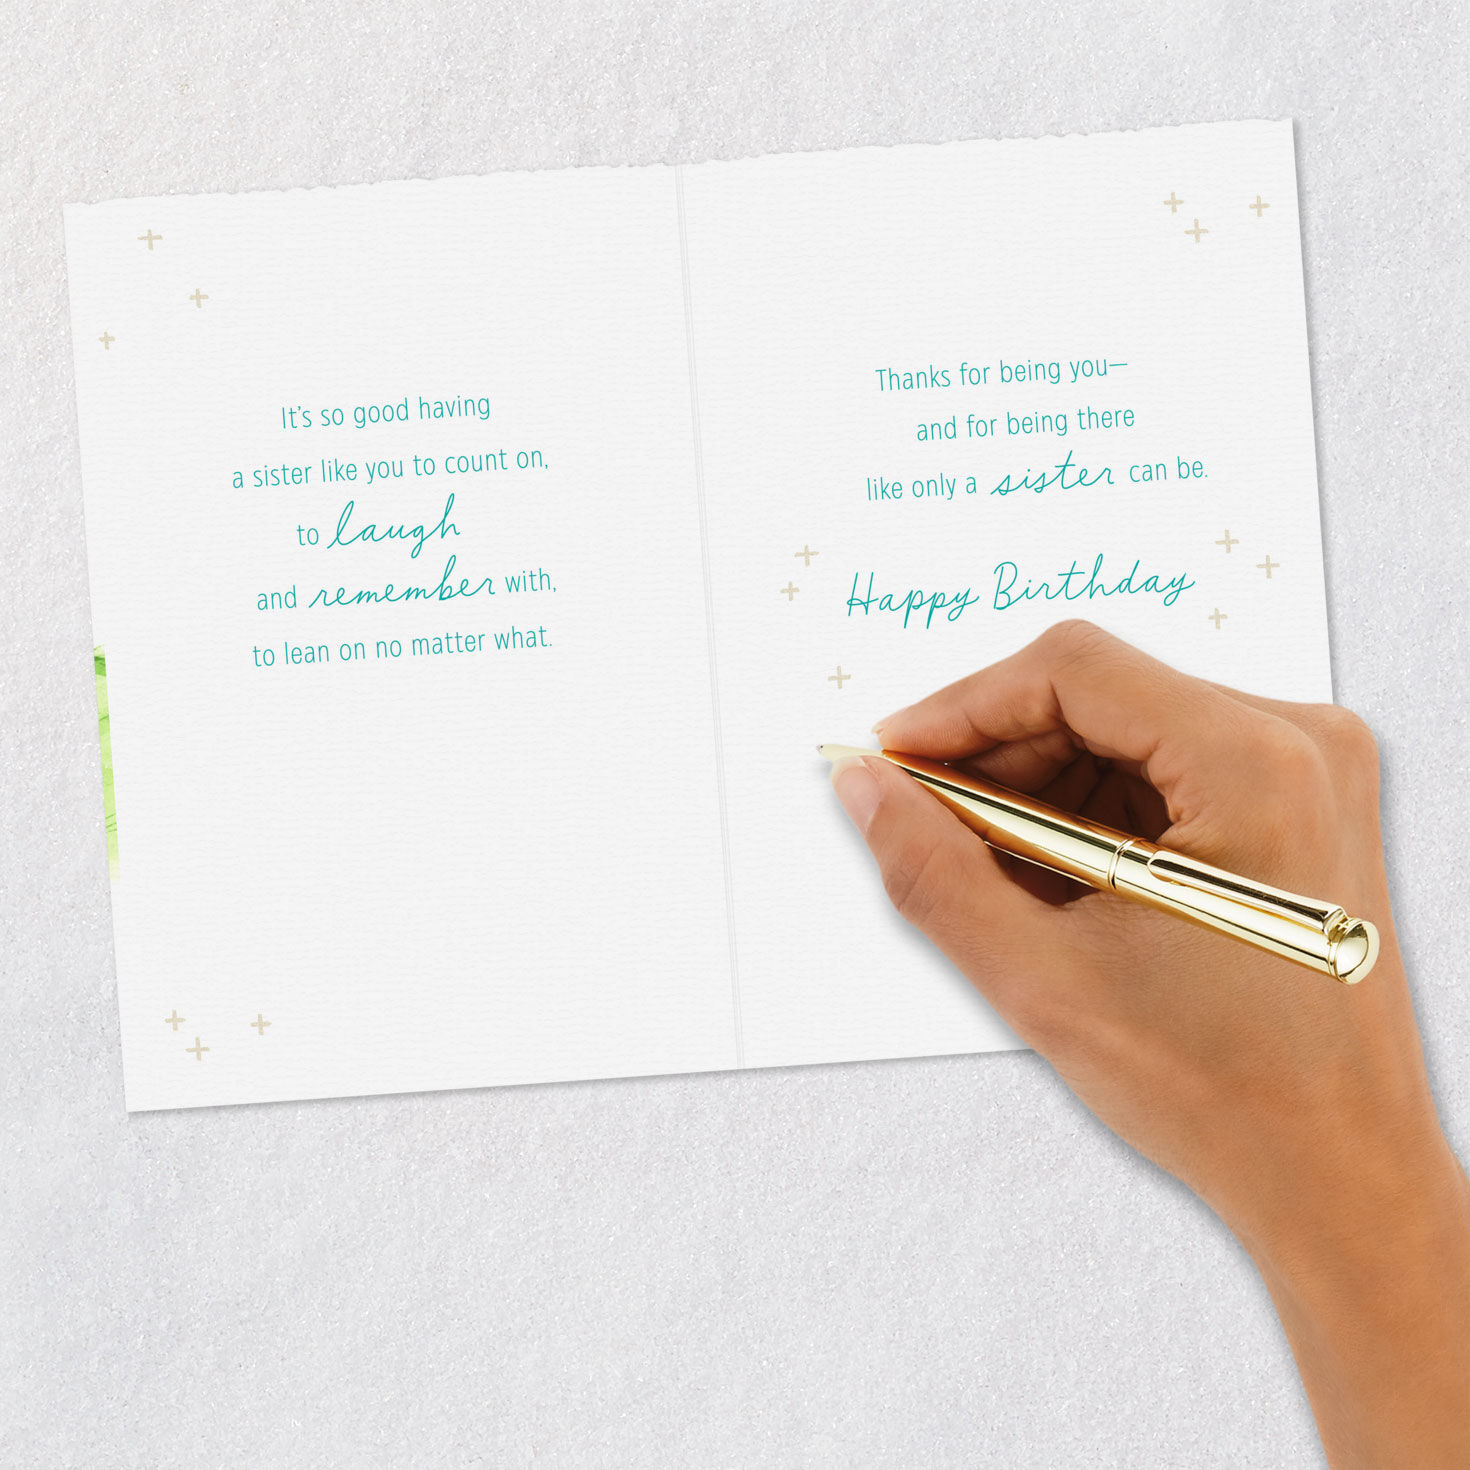 It's so good having
a sister like you to count on,
to laugh
and remember with,
to lean on no matter what.
Thanks for being you—
and for being there
like only a sister can be.
Happy Birthday